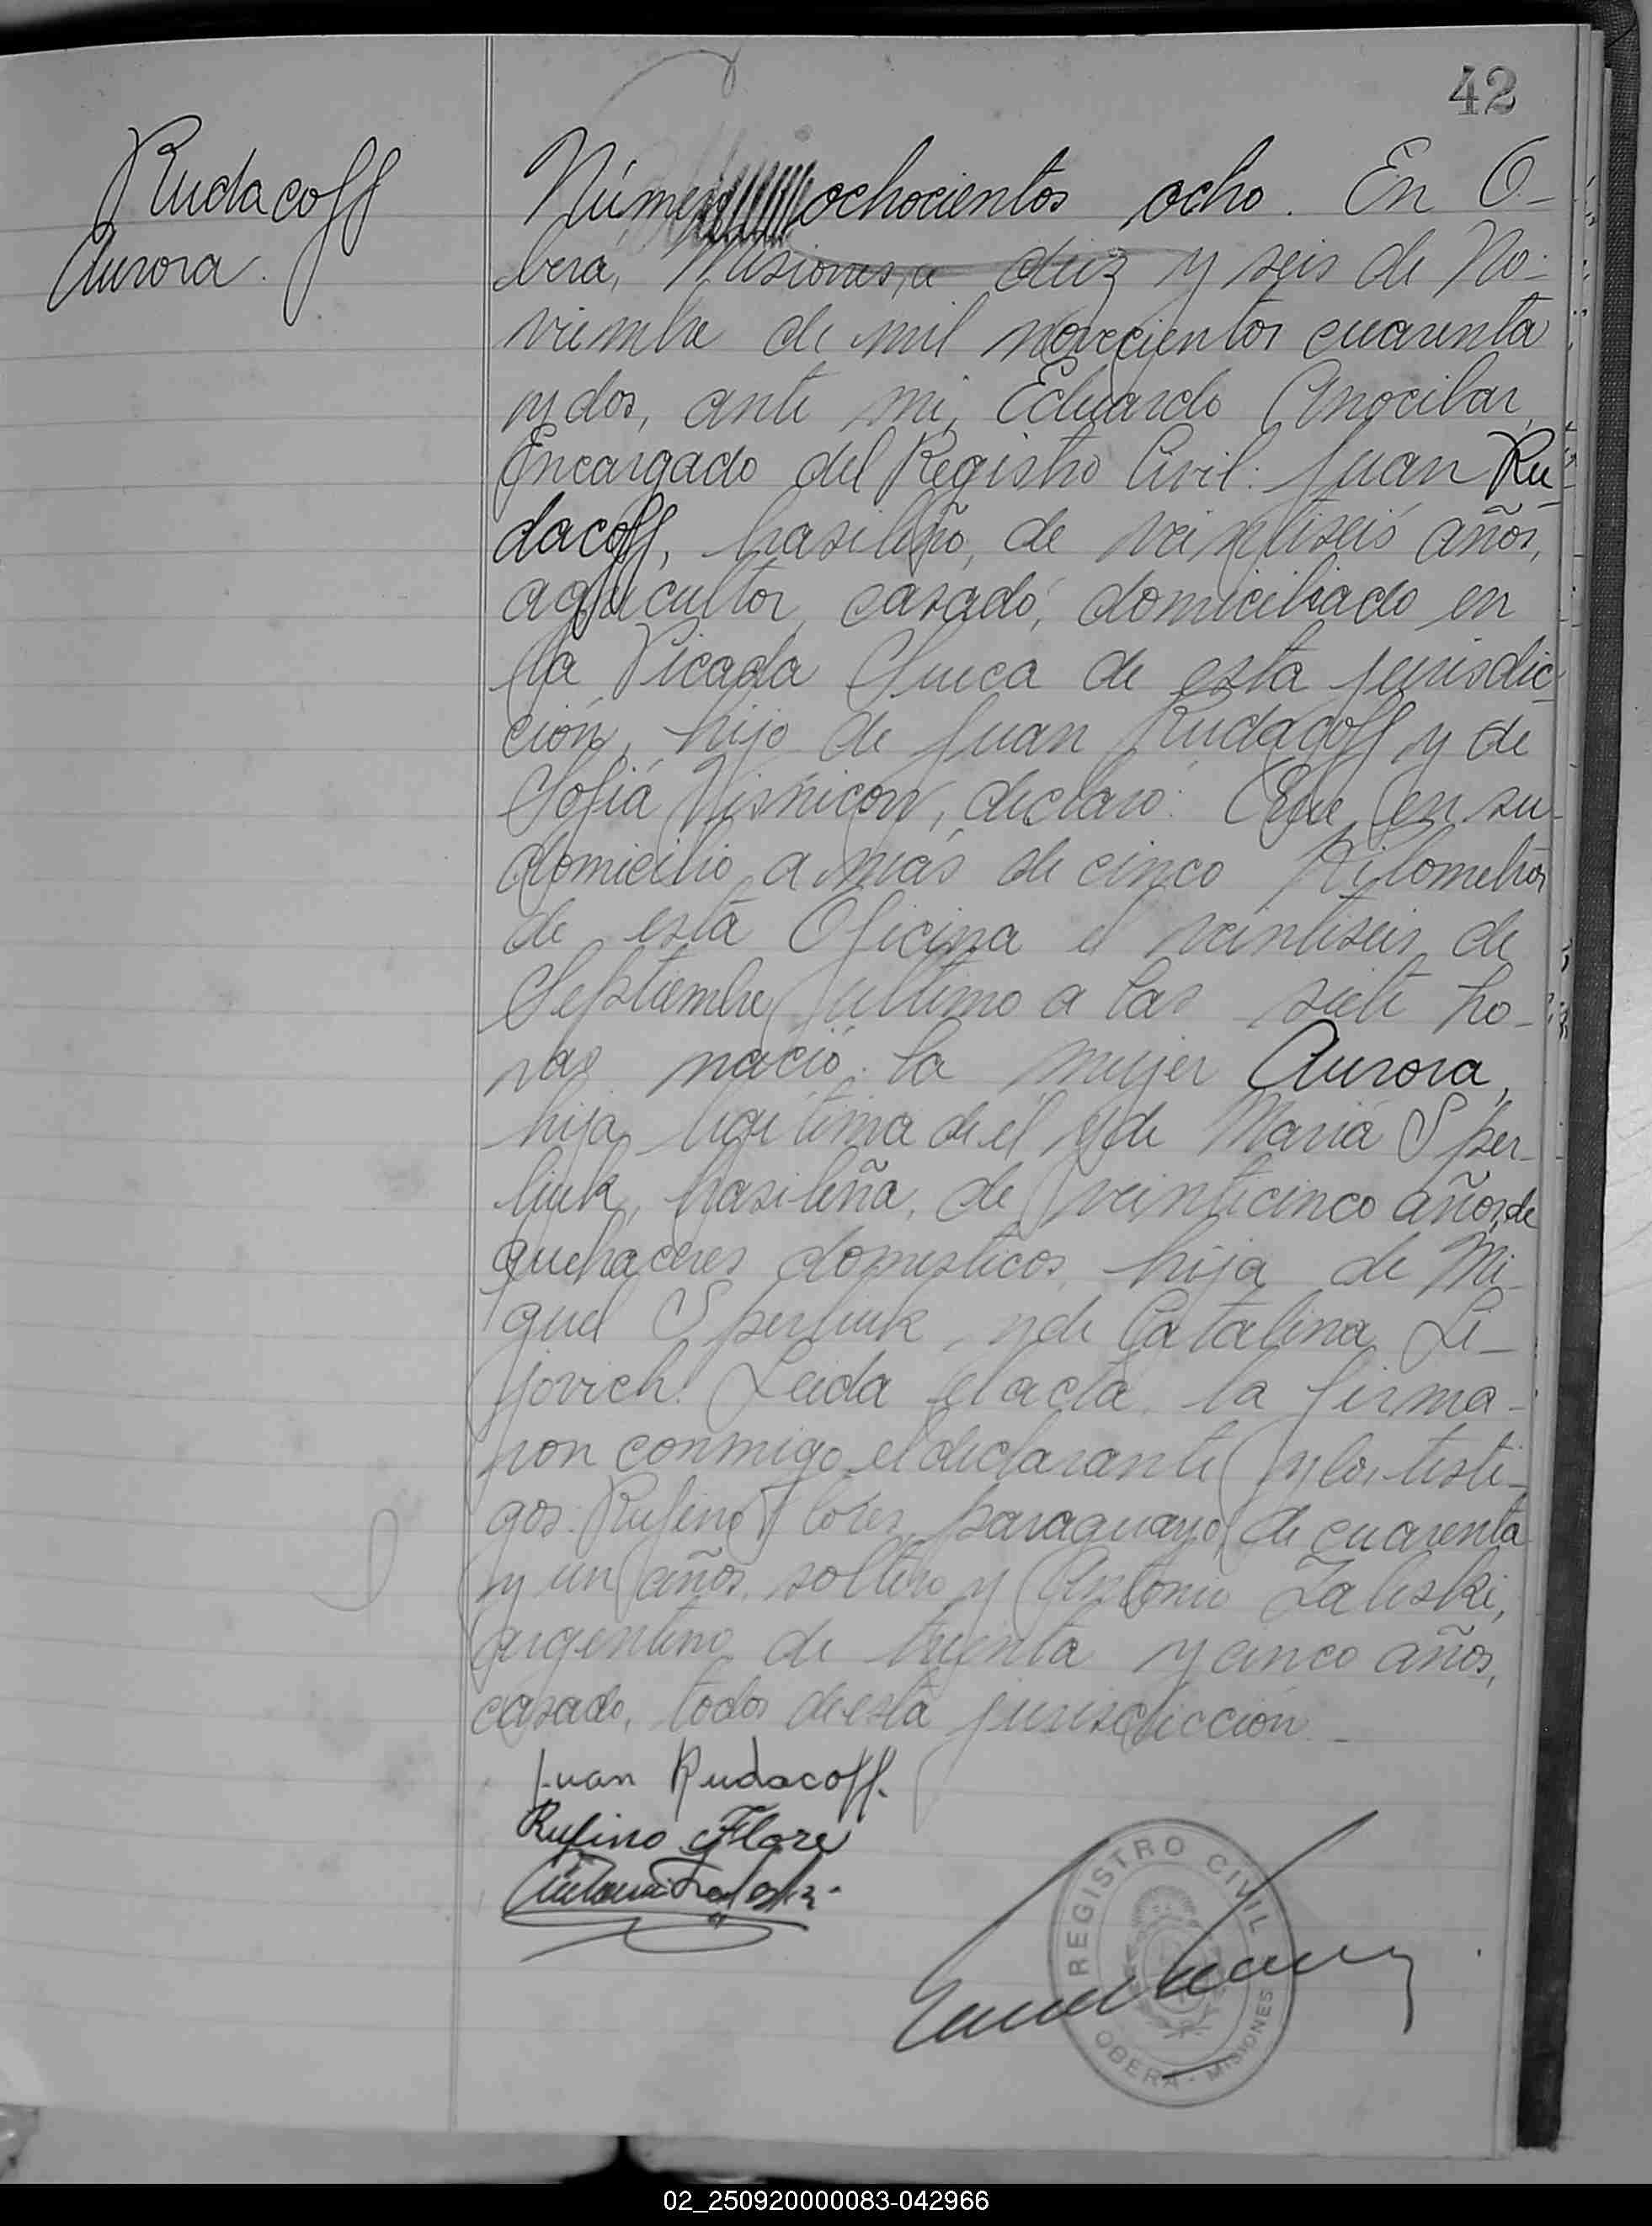 42
Rudacoff
Aurora.
Número ochocientos ocho. En O-
berá, Misiones, a diez y seis de No-
viembre de mil novecientos cuarenta
y dos, ante mi, Eduardo Anocibar,
Encargado del Registro Civil: Juan Ru-
dacoff, brasileño, de veintiseis años,
agricultor, casado, domiciliado en
la Picada Sueca de esta jurisdic-
ción, hijo de Juan Rudacoff y de
Sofiá Visnicow, declaró: Que en su
domicilio a más de cinco Kilometros
de esta Oficina el veintiseis de
Septiembre último a las siete ho-
ras nació la mujer Aurora,
hija legitima de el y de Mariá Sper-
liuk, brasileña, de veinticinco años, de
quehaceres domesticos, hija de Mi-
guel Sperliuk, y de Catalina Li-
jovich. Leida el acta, la firma-
ron conmigo el declarante y los testi-
gos: Rufino Flores, paraguayo, de cuarenta
y un años, soltero y Antonio Zaleski,
argentino de treinta y cinco años,
casado, todos de esta jurisdicción.-
Juan Rudacoff.
Rufino Flore
REGISTRO CIVIL
OBERÁ - MISIONES
02_250920000083-042966